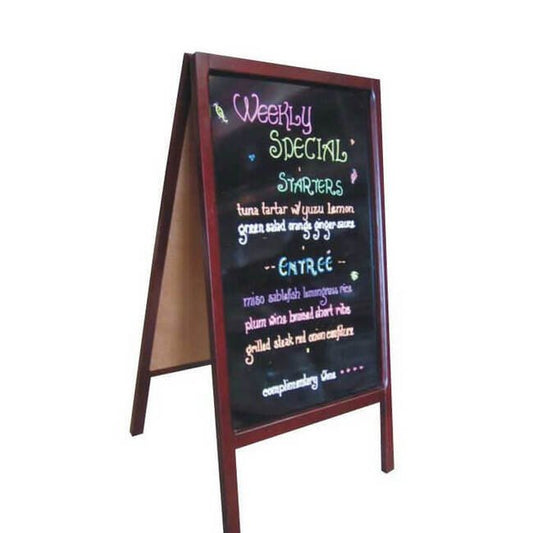 WEEKLY
SPECIAL
STARTERS
tuna tartar w/ yuzu lemon
green salad orange ginger sauce
-- ENTREÉ --
miso sablefish lemongrass rice
plum wine braised short ribs
grilled steak red onion confiture
complimentary wine